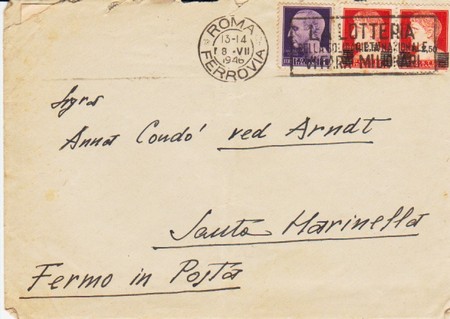 ROMA
13-14
18 - VII
1946
FERROVIA
LOTTERIA
Sigra
Anna Coudó ved Arndt
Santa Marinella
Fermo in Posta